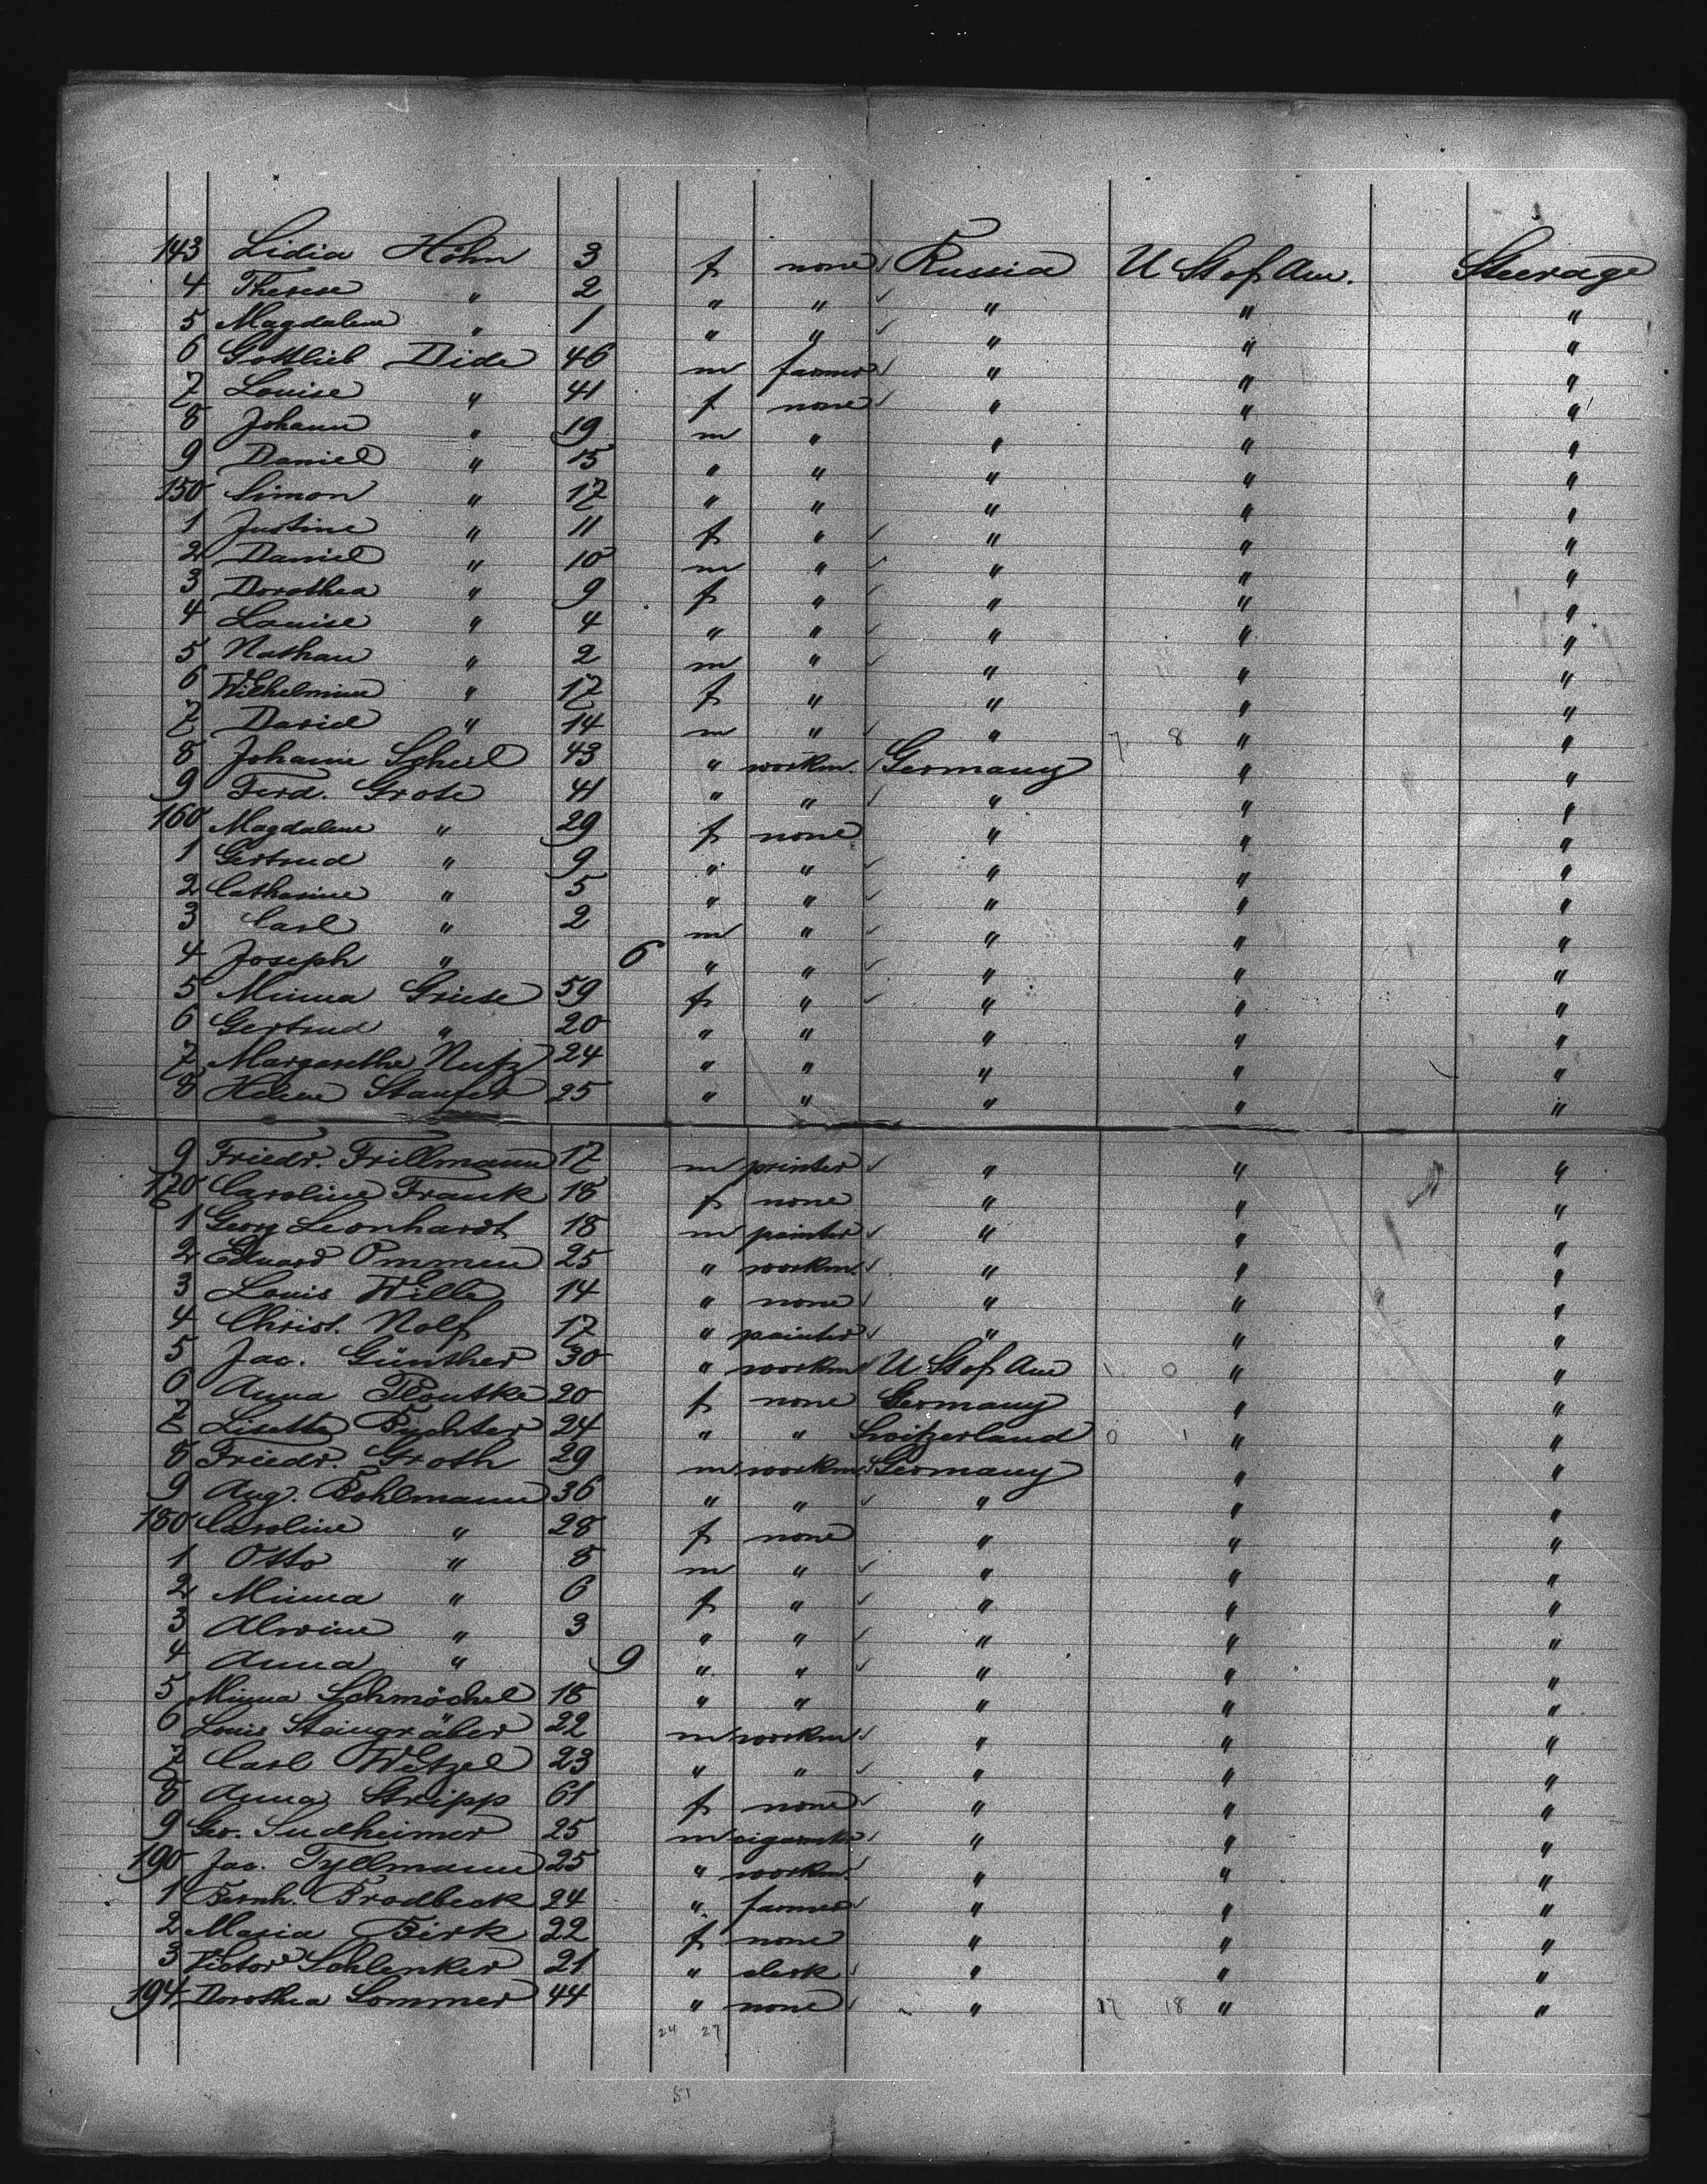 143 Lidia Höhn 3 f none Russia U St of Am. Steerage
4 Therese " 2 " " " " "
5 Magdalene " 1 " " " " "
6 Gottlieb Dide 46 m farmer " " "
7 Louise " 41 f none " " "
8 Johann " 19 m " " " "
9 Daniel " 15 " " " " "
150 Simon " 17 " " " " "
1 Justine " 11 f " " " "
2 Daniel " 10 m " " " "
3 Dorothea " 9 f " " " "
4 Louise " 4 " " " " "
5 Nathan " 2 m " " " "
6 Wilhelmine " 17 f " " " "
7 David " 14 m " " 7 8 " "
8 Johann Scheel 43 " workm. Germany " "
9 Ferd. Grote 41 " " " " "
160 Magdalene " 29 f none " " "
1 Gertrud " 9 " " " " "
2 Catharine " 5 " " " " "
3 Carl " 2 m " " " "
4 Joseph " 6 " " " " "
5 Minna Griese 59 f " " " "
6 Gertrud " 20 " " " " "
7 Margarethe Nutz 24 " " " " "
8 Helene Staufer 25 " " " " "
9 Friedr. Frillmann 17 m printer " " "
170 Caroline Frank 18 f none " " "
1 Georg Leonhardt 18 m painter " " "
2 Eduard Ommen 25 " workm. " " "
3 Louis Wille 14 " none " " "
4 Christ. Nolf 17 " painter " " "
5 Jac. Günther 30 " workm U St of Am 1 0 " "
6 Anna 20 f none Germany " "
7 Lisette 24 " " Switzerland 0 1 " "
8 Friedr. Groth 29 m workm Germany " "
9 Aug. Bohlmann 36 " " " " "
180 Caroline " 28 f none " " "
1 Otto " 8 m " " " "
2 Minna " 6 f " " " "
3 Alwine " 3 " " " " "
4 Anna " 9 " " " " "
5 Minna Schmöchel 18 " " " " "
6 Louis Steingräber 22 m workm " " "
7 Carl Wetzel 23 " " " " "
8 Anna Stripp 61 f none " " "
9 Geo. Sudheimer 25 m cigarmkr " " "
190 Jac. Tyllmann 25 " workm. " " "
1 Bernh. Brodbeck 24 " farmer " " "
2 Maria Birk 22 f none " " "
3 Victor Schlenker 21 " clerk " " "
194 Dorothea Sommer 44 " none " 17 18 " "
24 27
51